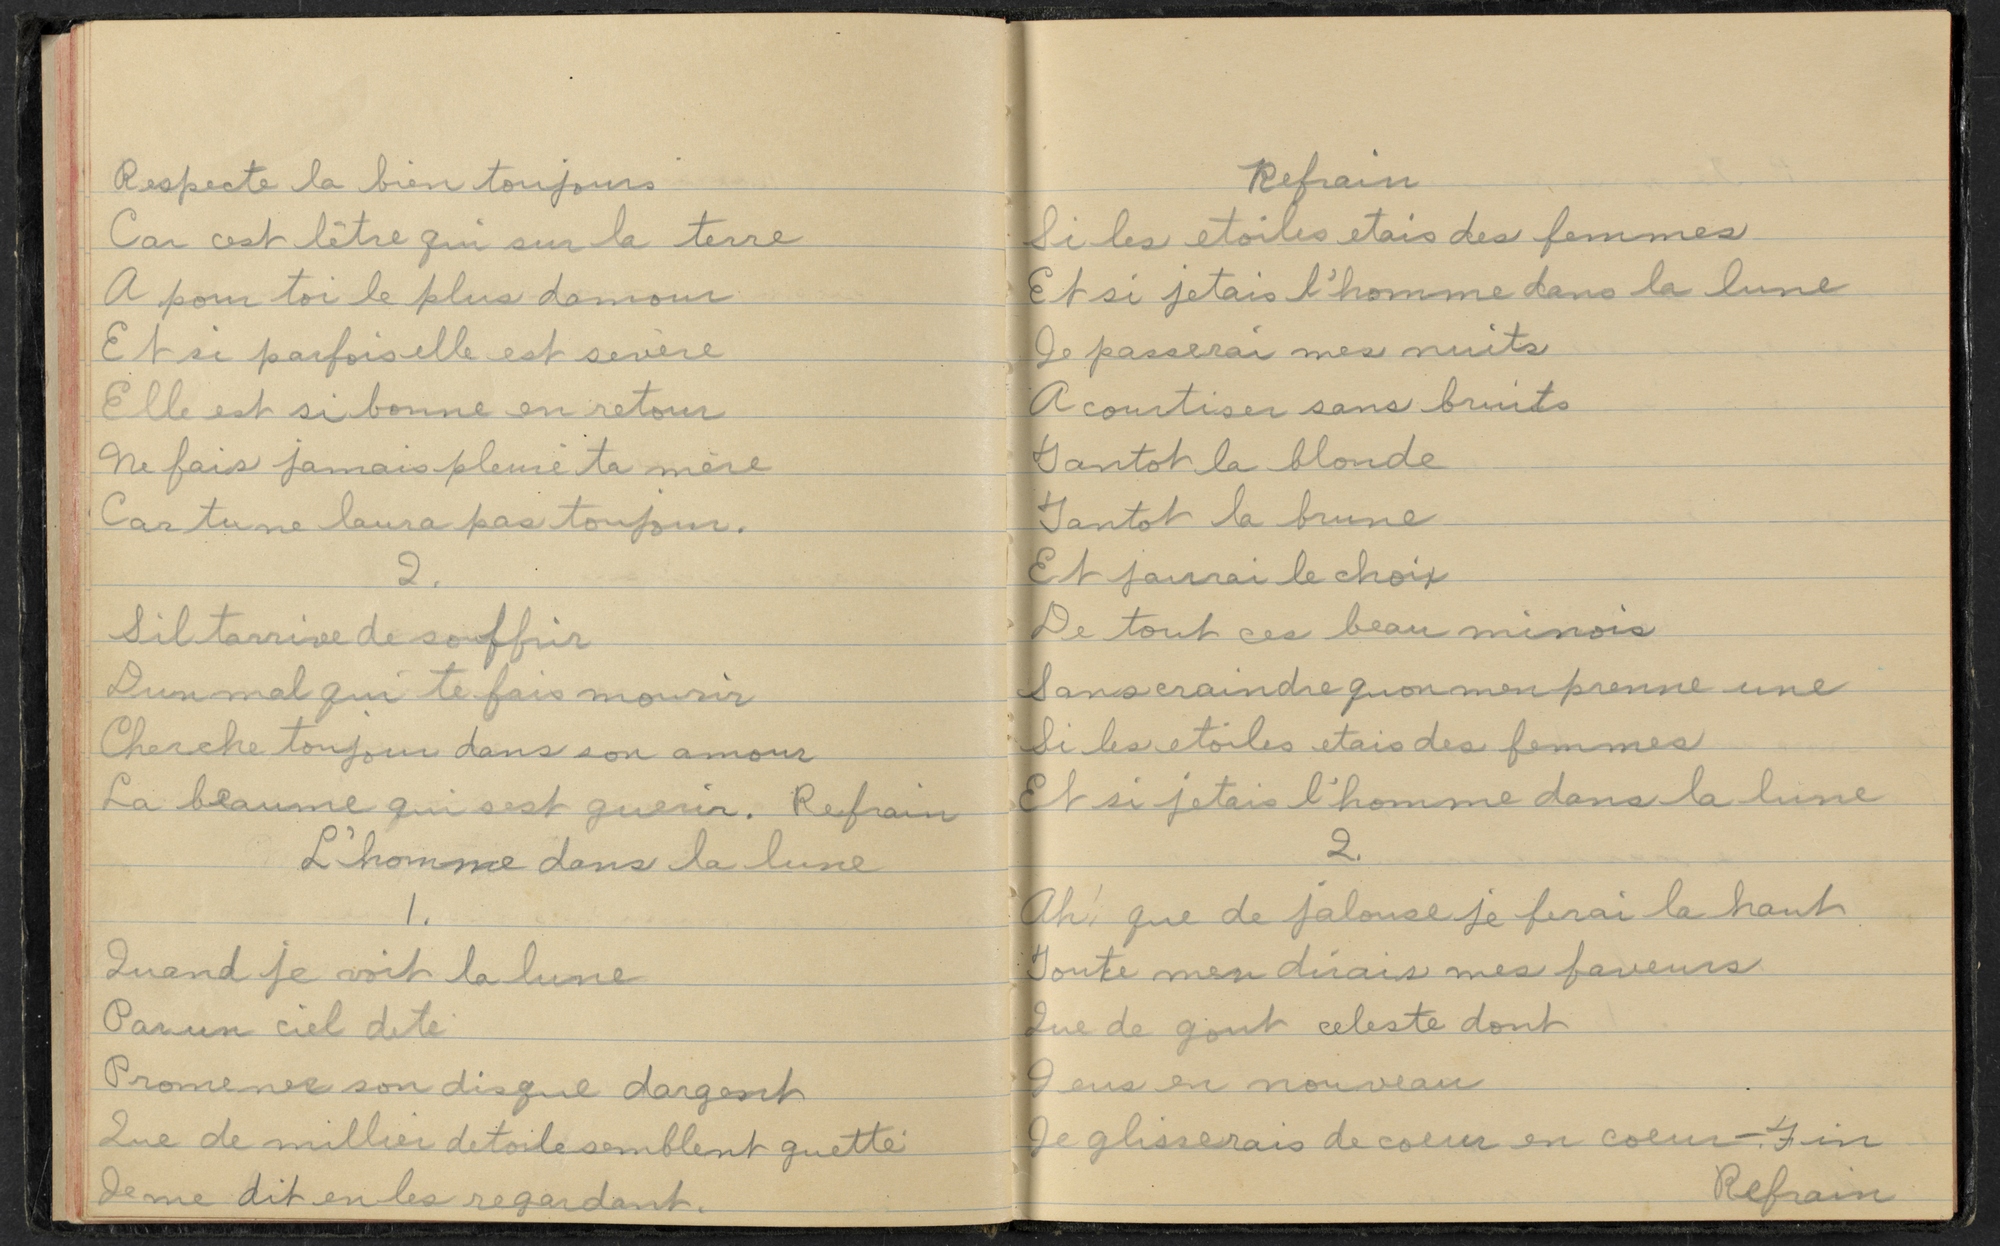 Respecte la bien toujours
Car cest lêtre qui sur la terre
A pour toi le plus damour
Et si parfois elle est sevère
Elle est si bonne en retour
Ne fais jamais pleuré ta mère
Car tu ne laura pas toujour.
2.
Sil tarrive de souffrir
Dun mal qui te fais mourir
Cherche toujour dans son amour
La beaume qui sest guerir. Refrain
L'homme dans la lune
1.
Quand je voit la lune
Par un ciel dete
Promener son disque dargent
Que de millier detoile semblent guetté
Je me dit en les regardant.
Refrain
Si les etoiles etais des femmes
Et si jetais l'homme dans la lune
Je passerai mes nuits
A courtiser sans bruits
Tantot la blonde
Tantot la brune
Et jaurai le choix
De tout ces beau minois
Sans craindre quon men prenne une
Si les etoiles etais des femmes
Et si jetais l'homme dans la lune
2.
Ah! que de jalouse je ferai la haut
Toute men dirais mes faveurs
Que de gout celeste dont
Jeus en nouveau
Je glisserais de coeur en coeur - Fin
Refrain